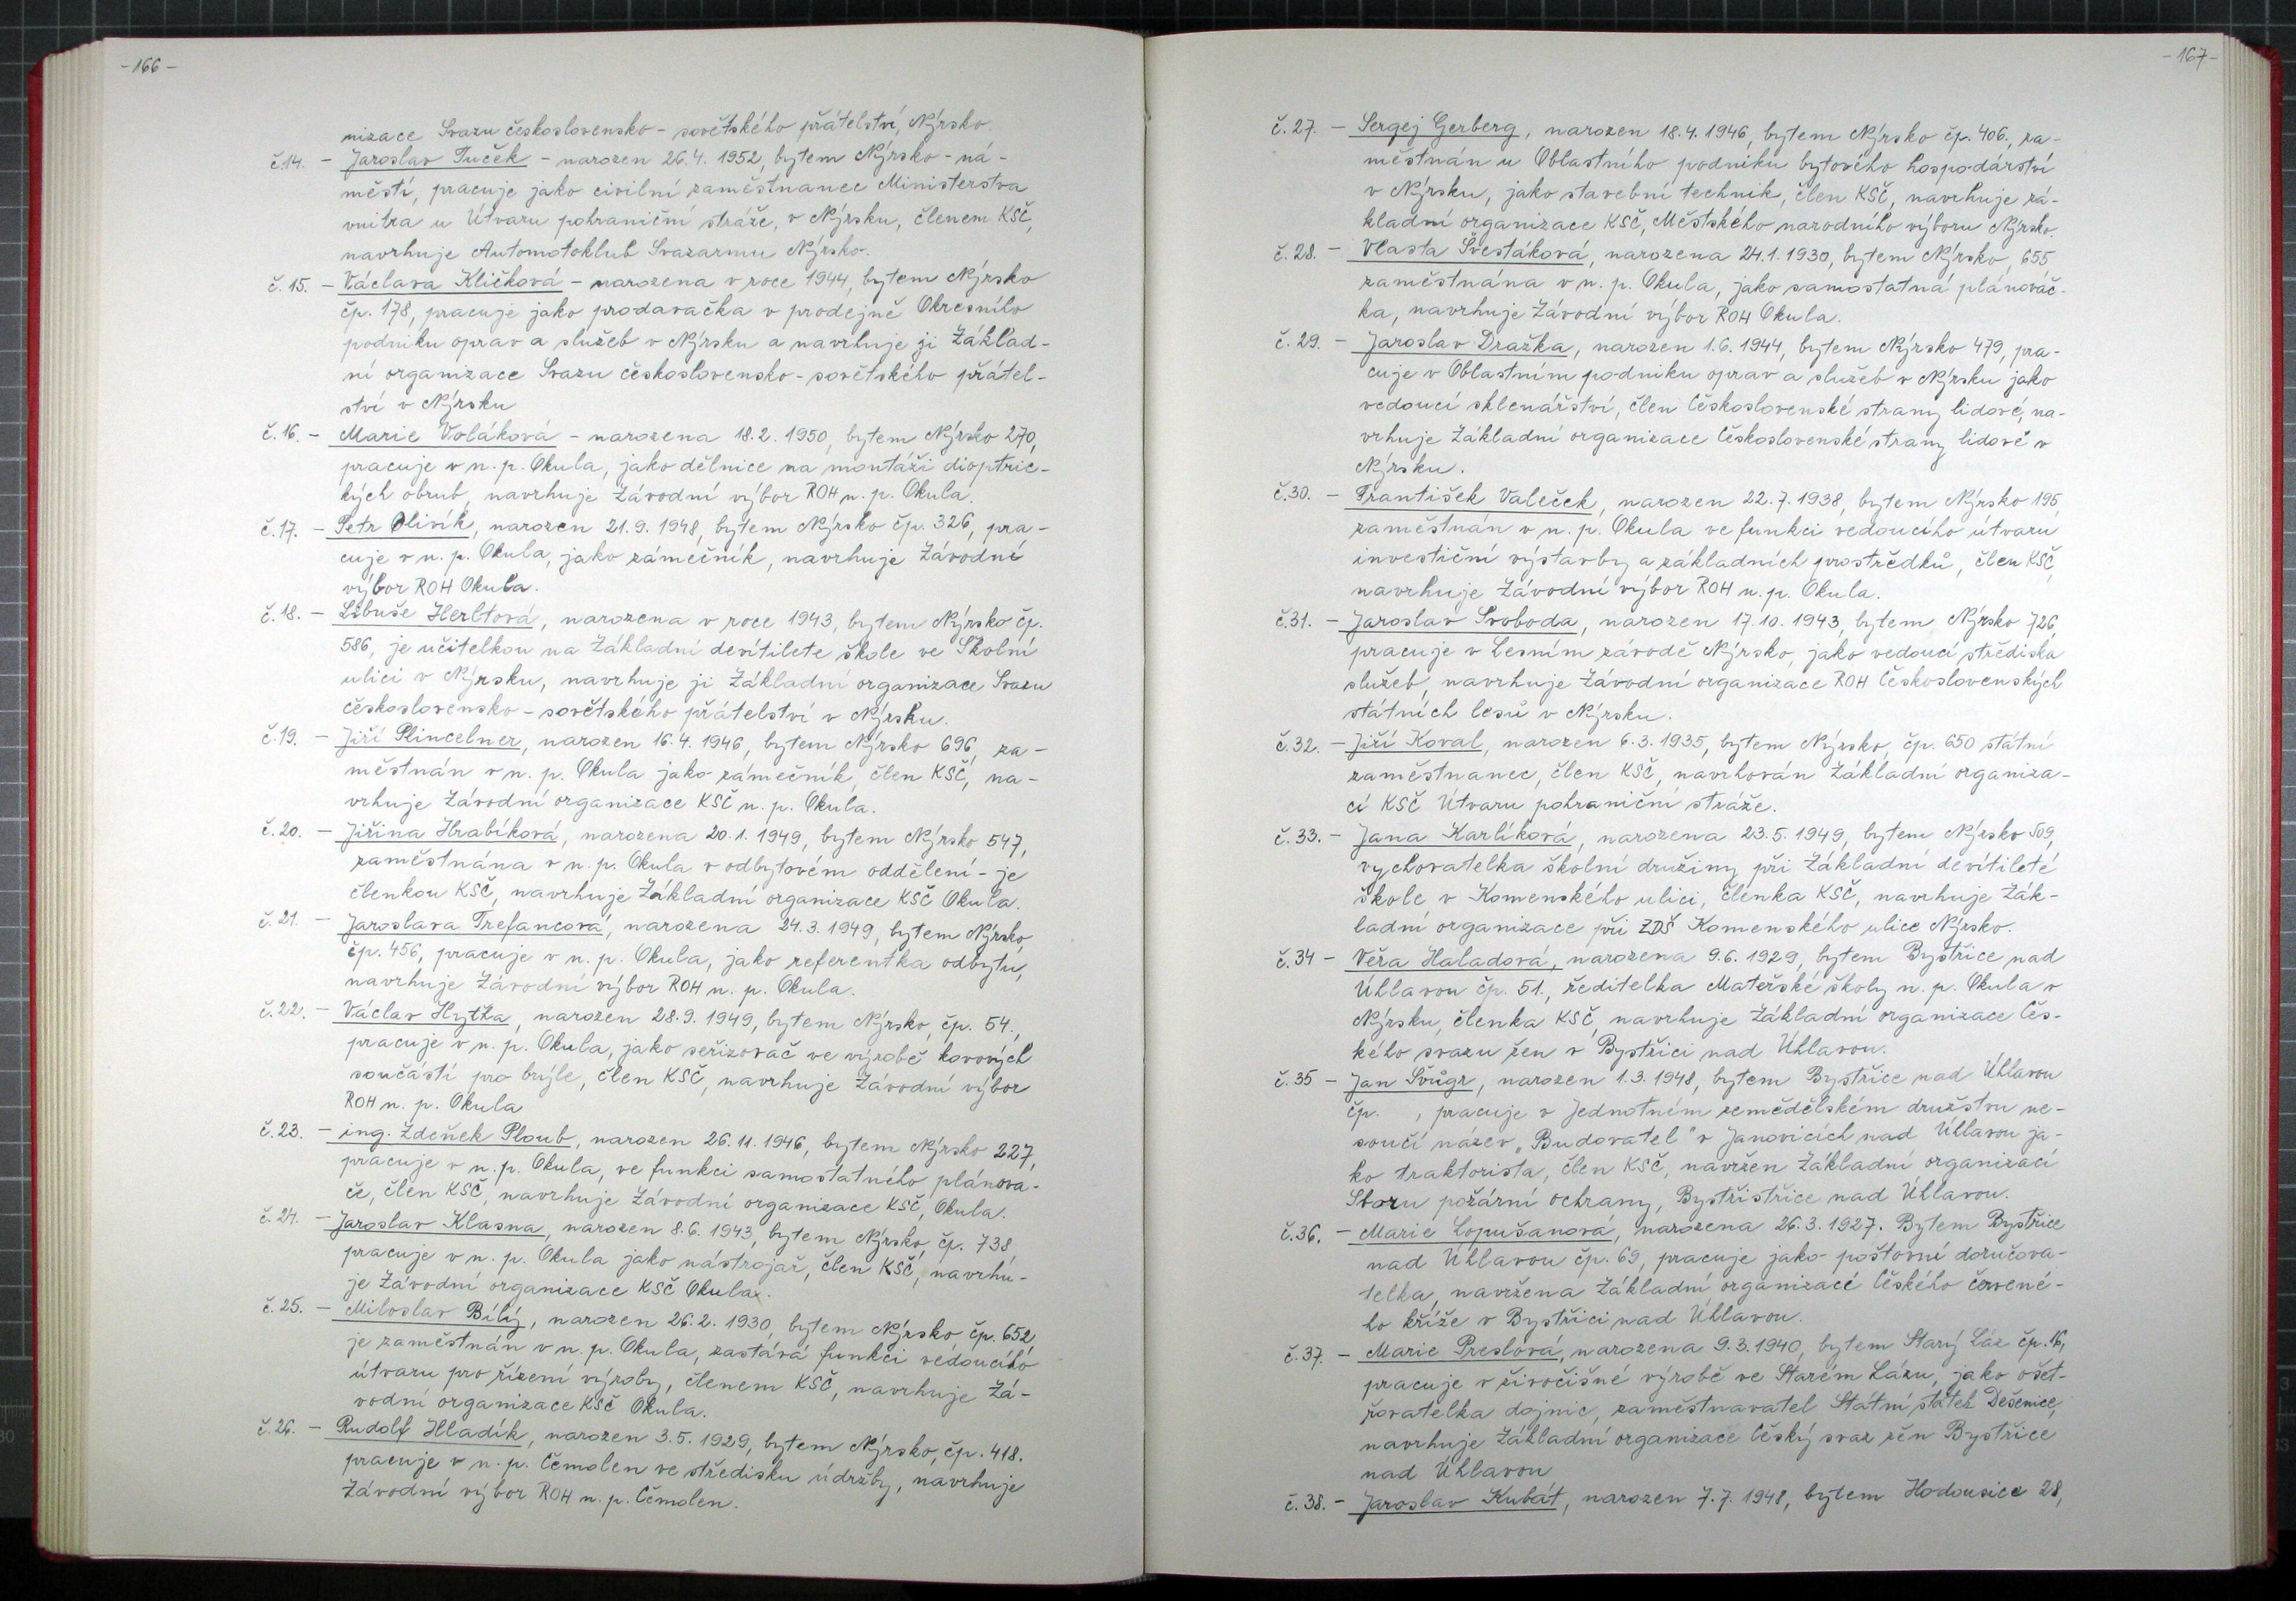 - 166 -
nizace Svazu československo - sovětského přátelství, Nýrsko.
č.14. - Jaroslav Tuček - narozen 26.4. 1952, bytem Nýrsko - ná-
městí, pracuje jako civilní zaměstnanec Ministerstva
vnitra u Útvaru pohraniční stráže, v Nýrsku, členem KSČ,
navrhuje Automotoklub Svazarmu Nýrsko.
č.15. - Václava Kličková - narozena v roce 1944, bytem Nýrsko
čp. 178, pracuje jako prodavačka v prodejně Okresního
podniku oprav a služeb v Nýrsku a navrhuje ji Základ-
ní organizace Svazu československo - sovětského přátel-
ství v Nýrsku
č.16. - Marie Voláková - narozena 18.2. 1950, bytem Nýrsko 270,
pracuje v n. p. Okula, jako dělnice na montáži dioptric-
kých obrub, navrhuje Závodní výbor ROH n. p. Okula.
č.17. - Petr Olivík, narozen 21.9. 1948, bytem Nýrsko čp. 326, pra-
cuje v n. p. Okula, jako zámečník, navrhuje Závodní
výbor ROH Okula.
č.18. - Libuše Herltová, narozena v roce 1943, bytem Nýrsko čp.
586, je učitelkou na Základní devítilete škole ve Školní
ulici v Nýrsku, navrhuje ji Základní organizace Svazu
československo - sovětského přátelství v Nýrsku.
č.19. - Jiří Plincelner, narozen 16.4. 1946, bytem Nýrsko 696, za-
městnán v n. p. Okula jako zámečník, člen KSČ, na-
vrhuje Závodní organizace KSČ n. p. Okula.
č.20. - Jiřina Hrabíková, narozena 20.1. 1949, bytem Nýrsko 547,
zaměstnána v n. p. Okula v odbytovém oddělení - je
členkou KSČ, navrhuje Základní organizace KSČ Okula.
č.21. - Jaroslava Trefancová, narozena 24.3. 1949, bytem Nýrsko
čp. 456, pracuje v n. p. Okula, jako referentka odbytu,
navrhuje Závodní výbor ROH n. p. Okula.
č.22. - Václav Hytka, narozen 28.9. 1949, bytem Nýrsko, čp. 54.,
pracuje v n. p. Okula, jako seřizovač ve výrobě kovových
součástí pro brýle, člen KSČ, navrhuje Závodní výbor
ROH n. p. Okula
č.23. - ing. Zdeněk Ploub, narozen 26.11. 1946, bytem Nýrsko 227,
pracuje v n. p. Okula, ve funkci samostatného plánova-
če, člen KSČ, navrhuje Závodní organizace KSČ, Okula.
č.24. - Jaroslav Klasna, narozen 8.6. 1943, bytem Nýrsko, čp. 738,
pracuje v n. p. Okula jako nástrojař, člen KSČ, navrhu-
je Závodní organizace KSČ Okula.
č.25. - Miloslav Bílý, narozen 26.2. 1930, bytem Nýrsko, čp. 652,
je zaměstnán v n. p. Okula, zastává funkci vedoucího
útvaru pro řízení výroby, členem KSČ, navrhuje Zá-
vodní organizace KSČ Okula.
č.26. - Rudolf Hladík, narozen 3.5. 1929, bytem Nýrsko, čp. 418.
pracuje v n. p. Čemolen ve středisku údržby, navrhuje
Závodní výbor ROH n. p. Čemolen.
- 167 -
č.27. - Sergej Gerberg, narozen 18.4. 1946, bytem Nýrsko čp. 406., za-
městnán u Oblastního podniku bytového hospodářství
v Nýrsku, jako stavební technik, člen KSČ, navrhuje zá-
kladní organizace KSČ, Městského národního výboru Nýrsko.
č.28. - Vlasta Švestáková, narozena 24.1. 1930, bytem Nýrsko, 655
zaměstnána v n. p. Okula, jako samostatná plánovač-
ka, navrhuje Závodní výbor ROH Okula.
č.29. - Jaroslav Dražka, narozen 1.6. 1944, bytem Nýrsko 479, pra-
cuje v Oblastním podniku oprav a služeb v Nýrsku jako
vedoucí sklenářství, člen Československé strany lidové, na-
vrhuje Základní organizace Československé strany lidové v
Nýrsku.
č.30. - František Valeček, narozen 22.7. 1938, bytem Nýrsko 195,
zaměstnán v n. p. Okula ve funkci vedoucího útvaru
investiční výstavby a základních prostředků, člen KSČ,
navrhuje Závodní výbor ROH n. p. Okula.
č.31. - Jaroslav Svoboda, narozen 17.10. 1943, bytem Nýrsko 726
pracuje v Lesním závodě Nýrsko, jako vedoucí střediska
služeb, navrhuje Závodní organizace ROH Československých
státních lesů v Nýrsku.
č.32. - Jiří Koval, narozen 6.3. 1935, bytem Nýrsko, čp. 650 státní
zaměstnanec, člen KSČ, navrhován Základní organiza-
cí KSČ Útvaru pohraniční stráže.
č.33. - Jana Karlíková, narozena 23.5. 1949, bytem Nýrsko 509,
vychovatelka školní družiny při Základní devítileté
škole v Komenského ulici, členka KSČ, navrhuje Zák-
ladní organizace při ZDŠ Komenského ulice Nýrsko.
č.34 - Věra Haladová, narozena 9.6. 1929, bytem Bystřice nad
Úhlavou čp. 51., ředitelka Mateřské školy n. p. Okula v
Nýrsku, členka KSČ, navrhuje Základní organizace Čes-
kého svazu žen v Bystřici nad Úhlavou.
č.35 - Jan Švůgr, narozen 1.3. 1948, bytem Bystřice nad Úhlavou
čp. , pracuje v Jednotném zemědělském družstvu ne-
soucí název „Budovatel" v Janovicích nad Úhlavou ja-
ko traktorista, člen KSČ, navržen Základní organizací
Sboru požární ochrany, Bystřistřice nad Úhlavou.
č.36. - Marie Lopušanová, narozena 26.3. 1927. Bytem Bystřice
nad Úhlavou čp. 69, pracuje jako poštovní doručova-
telka, navržena Základní organizací Českého červené-
ho kříže v Bystřici nad Úhlavou.
č.37. - Marie Preslová, narozena 9.3. 1940, bytem Starý Láz čp. 16,
pracuje v živočišné výrobě ve Starém Lázu, jako ošet-
řovatelka dojnic, zaměstnavatel Státní statek Dešenice,
navrhuje Základní organizace Český svaz žen Bystřice
nad Úhlavou
č.38. - Jaroslav Kubát, narozen 7.7. 1948, bytem Hodousice 28,